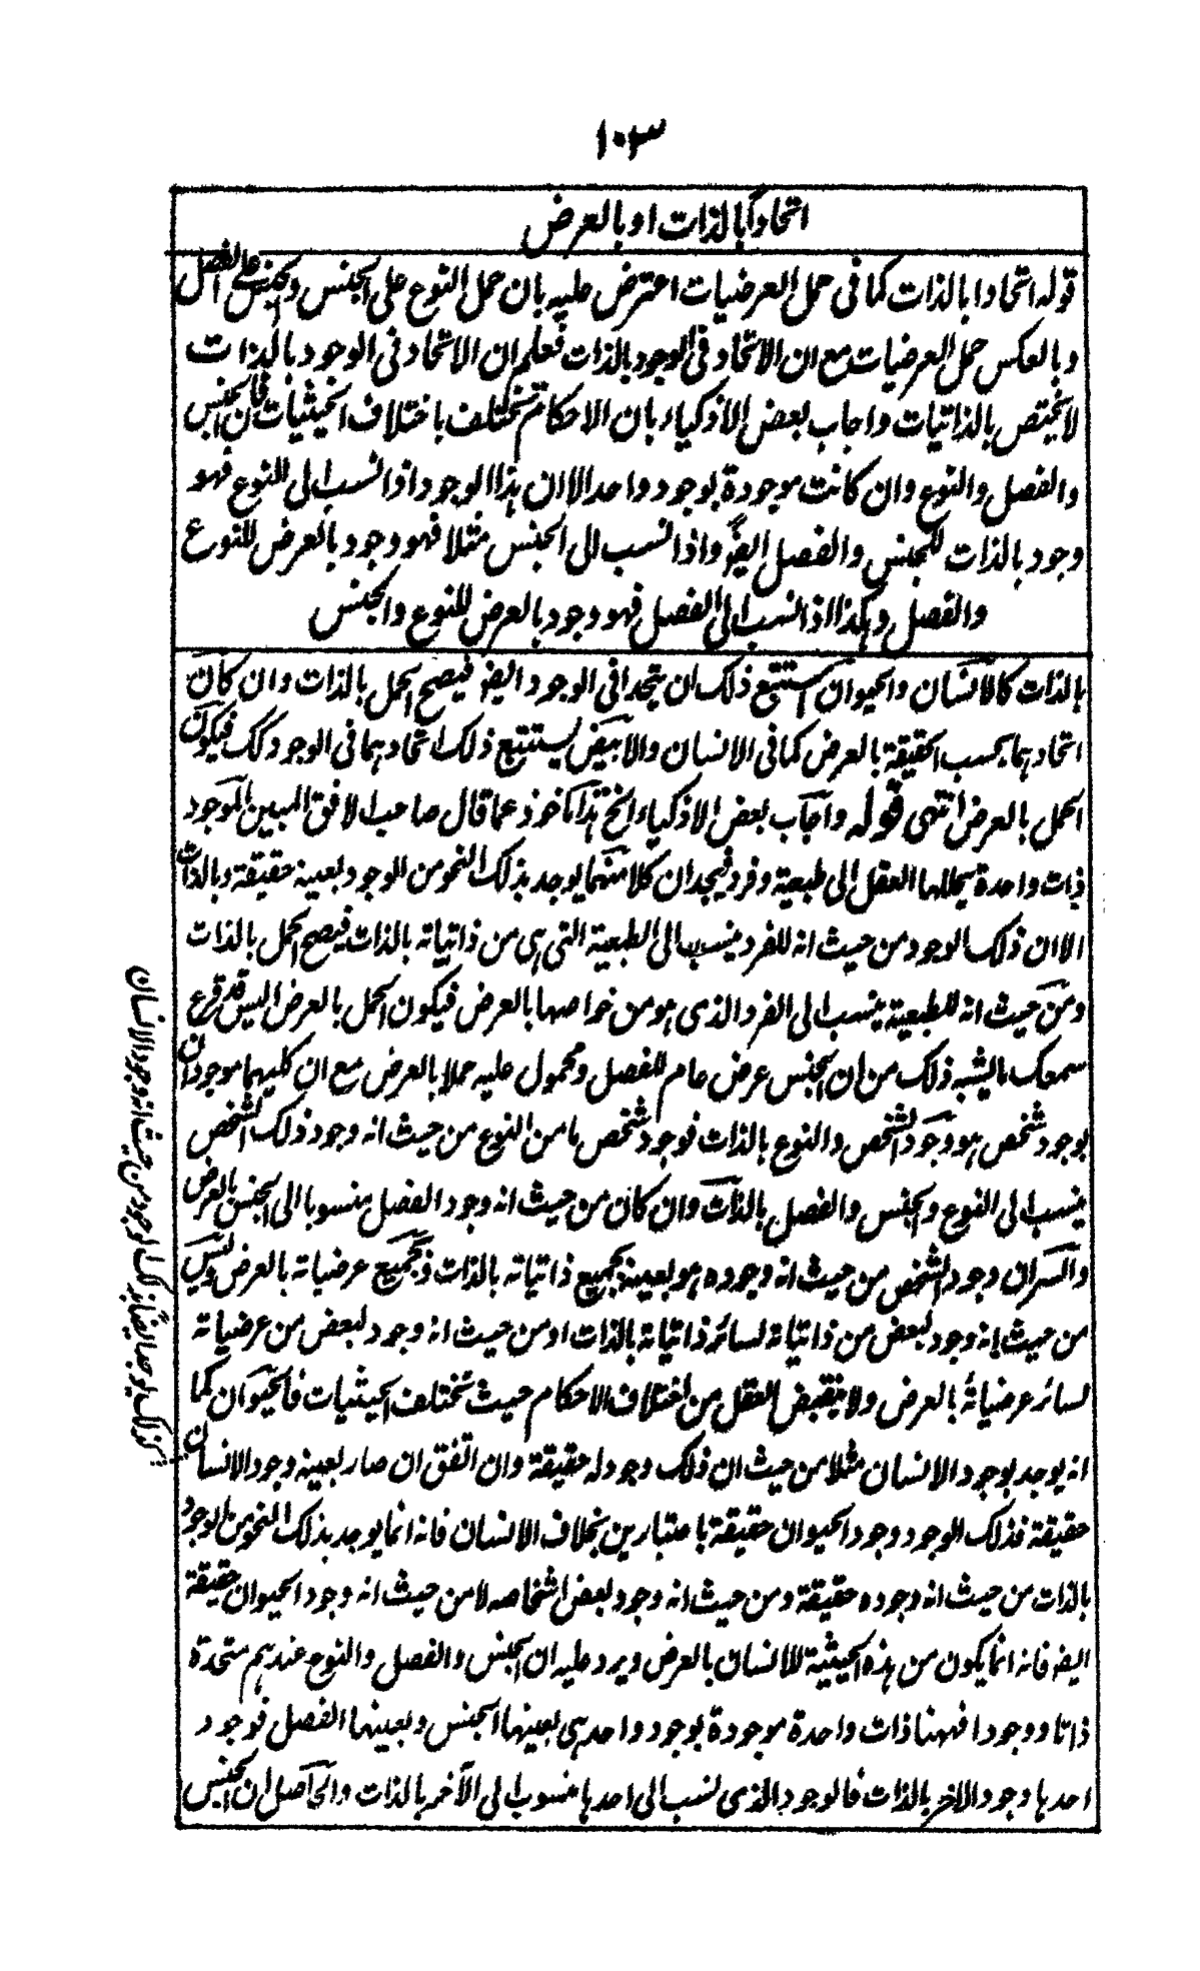 ١٠٣
اتحادًا بالذات او بالعرض
قوله اتحادا بالذات كما فى حمل العرضيات اعترض عليه بان حمل النوع على الجنس والجنس على الفصل
وبالعكس حمل العرضيات مع ان الاتحاد فى الوجود بالذات فعلم ان الاتحاد فى الوجود بالذات
لا يختص بالذاتيات واجاب بعض الاذكياء بان الاحكام تختلف باختلاف الحيثيات فان الجنس
والفصل والنوع وان كانت موجودة بوجود واحد الا ان هذا الوجود اذا نسب الى النوع فهو
وجود بالذات للجنس والفصل ايضا واذا نسب الى الجنس مثلا فهو وجود بالعرض للنوع
والفصل وهكذا اذا نسب الى الفصل فهو وجود بالعرض للنوع والجنس
بالذات كالانسان والحيوان استتبع ذلك ان يتحدا فى الوجود ايضا فيصح الحمل بالذات وان كان
اتحادهما بحسب الحقيقة بالعرض كما فى الانسان والابيض يستتبع ذلك اتحادهما فى الوجود كك فيكون
الحمل بالعرض انتهى قوله واجاب بعض الاذكياء الخ هذا ماخوذ عما قال صاحب الافق المبين الموجود
ذات واحدة يحللها العقل الى طبيعة وفرد فيجد ان كلا منهما يوجد بذلك النحو من الوجود بعينه حقيقة وبالذات
الا ان ذلك الوجود من حيث انه للفرد ينسب الى الطبيعة التى هى من ذاتياته بالذات فيصح الحمل بالذات
ومن حيث انه للطبيعة ينسب الى الفرد الذى هو من خواصها بالعرض فيكون الحمل بالعرض اليس قد قرع
سمعك ما يشبه ذلك من ان الجنس عرض عام للفصل ومحمول عليه حملا بالعرض مع ان كليهما موجودان
بوجود شخص هو وجود الشخص والنوع بالذات فوجود شخص ما من النوع من حيث انه وجود ذلك الشخص
ينسب الى النوع والجنس والفصل بالذات وان كان من حيث انه وجود الفصل منسوبا الى الجنس بالعرض
والسر ان وجود الشخص من حيث انه وجوده هو بعينه لجميع ذاتياته بالذات ولجميع عرضياته بالعرض وليس
من حيث انه وجود لبعض من ذاتياته لسائر ذاتياته بالذات او من حيث انه وجود لبعض من عرضياته
لسائر عرضياته بالعرض ولا ينقبض العقل من اختلاف الاحكام حيث تختلف الحيثيات فالحيوان كما
انه يوجد بوجود الانسان مثلا من حيث ان ذلك وجود له حقيقة وان اتفق ان صار بعينه وجود الانسان
حقيقة فذلك الوجود وجود الحيوان حقيقة باعتبارين بخلاف الانسان فانه انما يوجد بذلك النحو من الوجود
بالذات من حيث انه وجوده حقيقة ومن حيث انه وجود بعض اشخاصه لا من حيث انه وجود الحيوان حقيقة
ايضا فانه انما يكون من هذه الحيثية للانسان بالعرض ويرد عليه ان الجنس والفصل والنوع عندهم متحدة
ذاتا ووجودا فههنا ذات واحدة موجودة بوجود واحد هى بعينها الجنس وبعينها الفصل فوجود
احدها وجود الاخر بالذات فالوجود الذى نسب الى احدها منسوب الى الآخر بالذات والحاصل ان الجنس
كذلك يوجد ايضا بذلك الوجود من حيث انه وجود الانسان